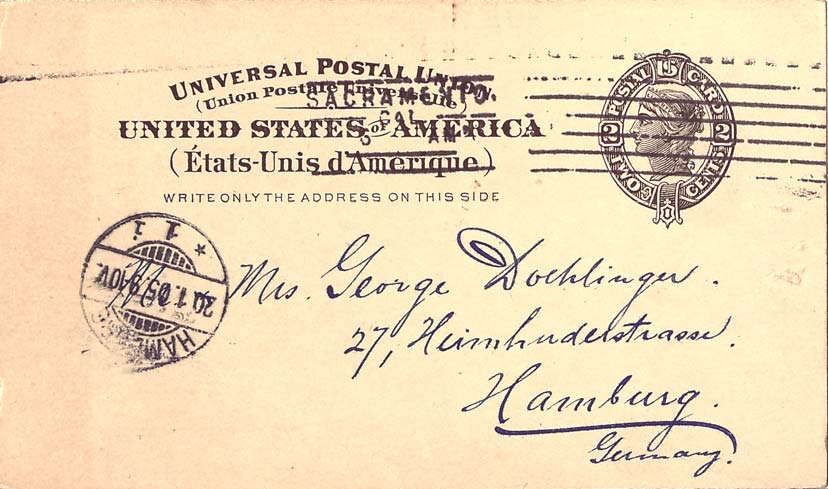 UNIVERSAL POSTAL UNION.
(Union Postale Universelle)
SACRAMENTO,
CAL.
AM
UNITED STATES OF AMERICA
(États-Unis d'Amerique)
WRITE ONLY THE ADDRESS ON THIS SIDE
POSTAL U S CARD
2 2
TWO CENTS
* 1 i
20.1.05.9-10V.
HAMBURG
Mrs. George Dochlinger.
27, Heimhuderstrasse.
Hamburg.
Germany.